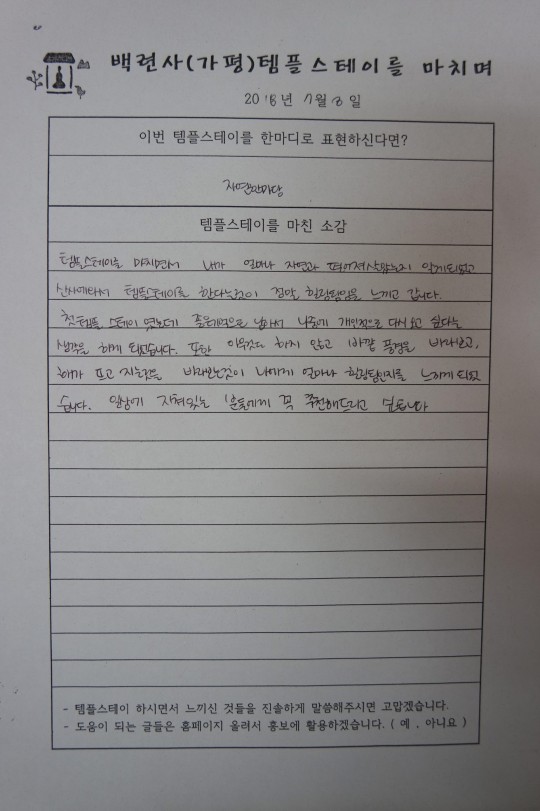 백련사(가평)템플스테이를 마치며
2018년 7월 8일
이번 템플스테이를 한마디로 표현하신다면?
자연한마당
템플스테이를 마친 소감
템플스테이를 마치면서 내가 얼마나 자연과 떨어져살았는지 알게되었고
산사에와서 템플스테이를 한다는것이 정말 힐링됨을 느끼고 갑니다.
첫템플 스테이 였는데 좋은기억으로 남아서 나중에 개인적으로 다시 오고 싶다는
생각을 하게 되었습니다. 또한 아무것도 하지 않고 바깥 풍경을 바라보고,
해가 뜨고 지는것을 바라보는것이 나에게 얼마나 힐링됨인지를 느끼게 되었
습니다. 일상에 지쳐있는 분들에게 꼭 추천해드리고 싶습니다
- 템플스테이 하시면서 느끼신 것들을 진솔하게 말씀해주시면 고맙겠습니다.
- 도움이 되는 글들은 홈페이지 올려서 홍보에 활용하겠습니다. ( 예 , 아니요 )